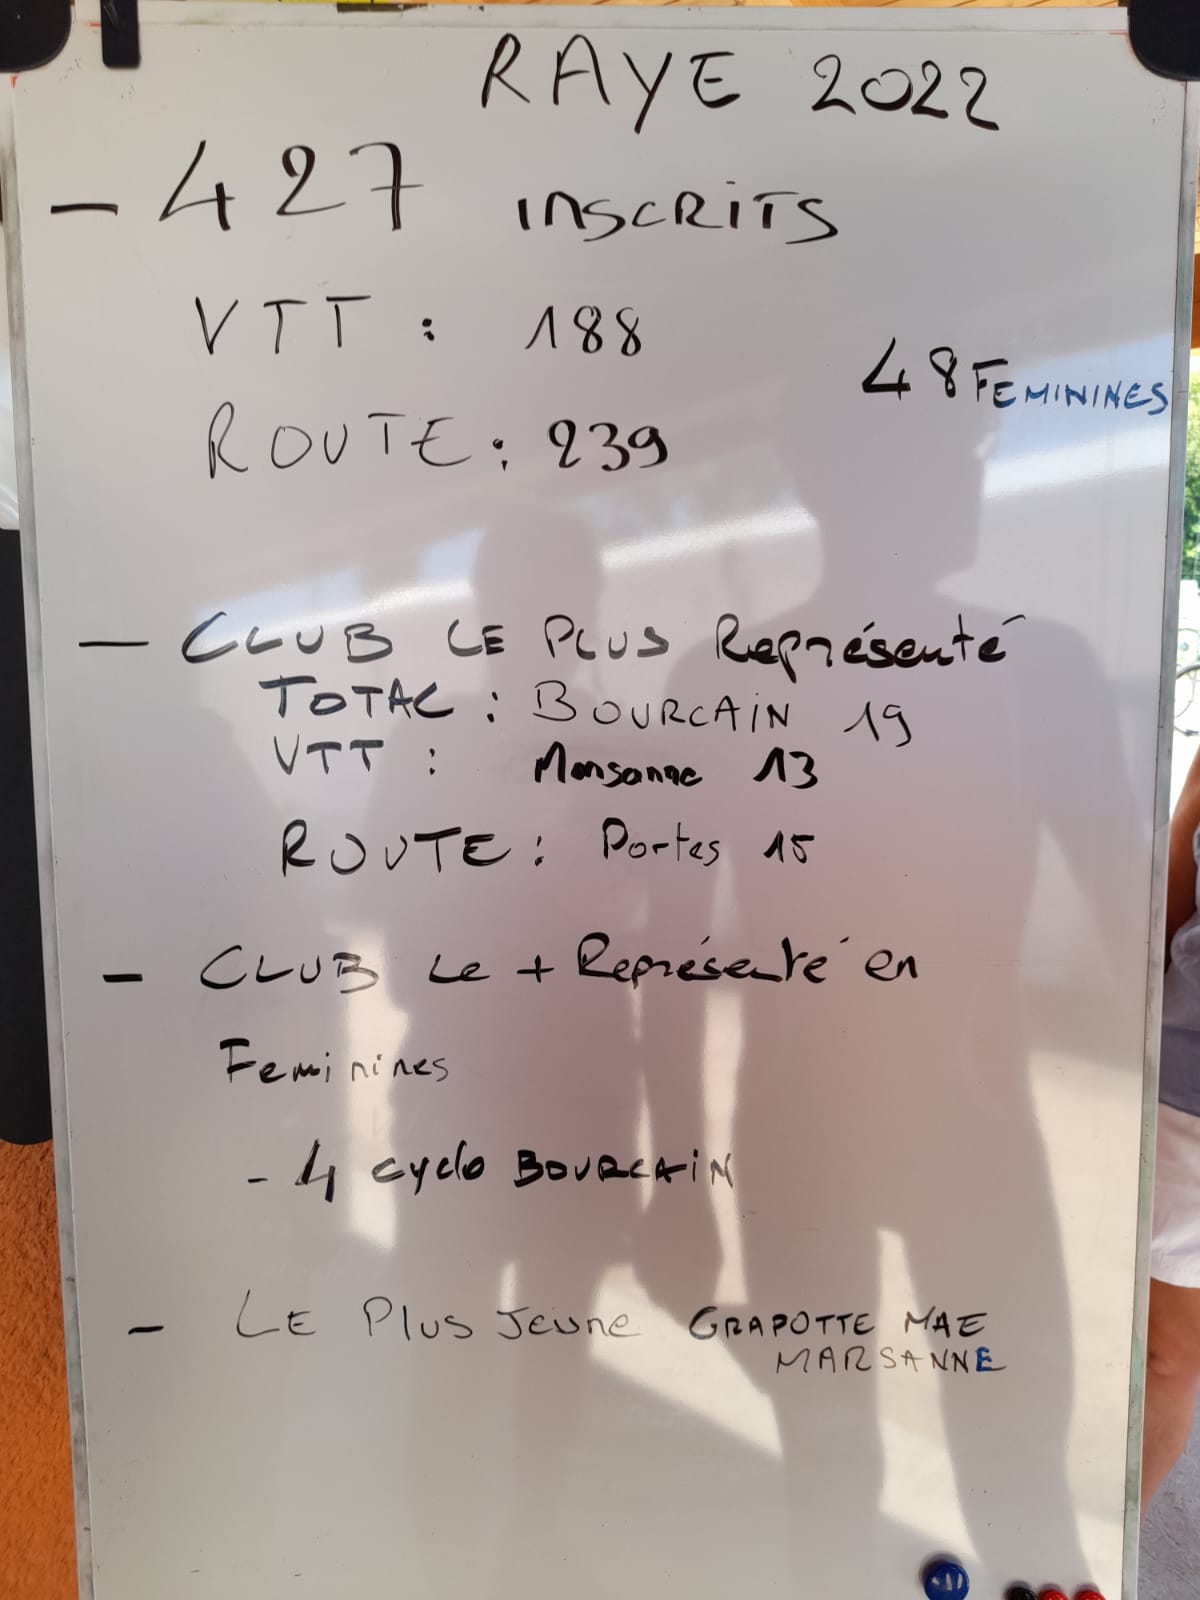 RAYE 2022
- 427 INSCRITS
VTT : 188
48 FEMININES
ROUTE : 239
- CLUB LE PLUS Représenté
TOTAL : BOURCAIN 19
VTT : Marsanne 13
ROUTE : Portes 15
- CLUB Le + Représenté en
Feminines
- 4 cyclo BOURCAIN
- LE Plus Jeune GRAPOTTE MAE
MARSANNE